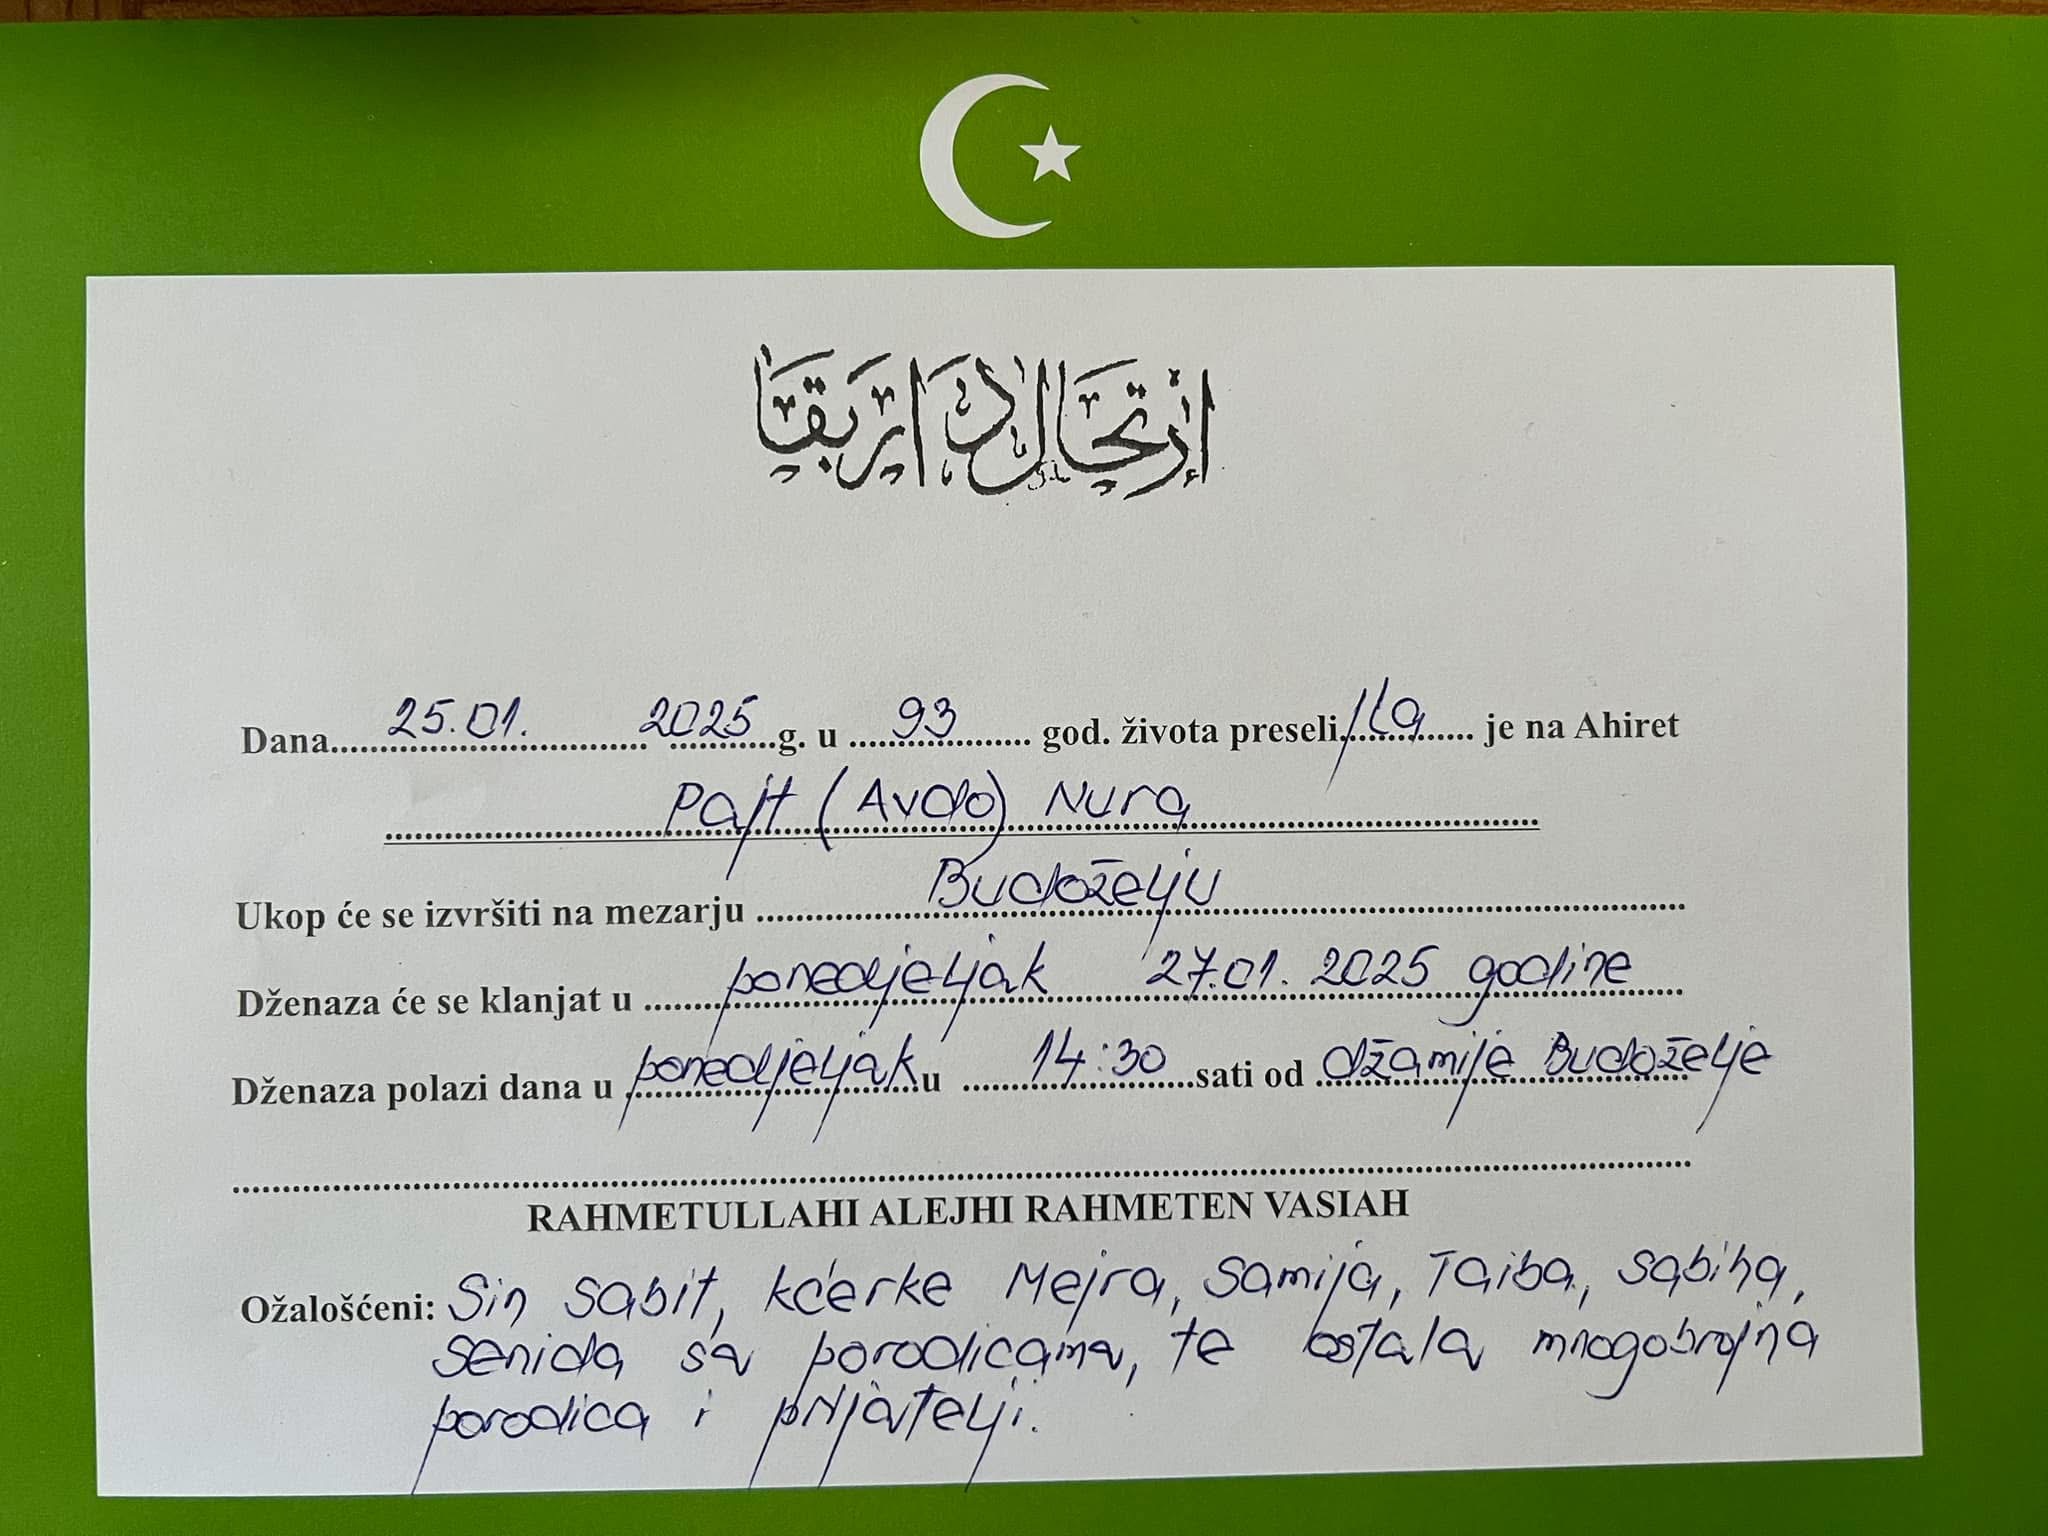 إرتحال دار بقا
Dana 25.01. 2025 g. u 93 god. života preseli/la je na Ahiret
Pajt (Avdo) Nura
Ukop će se izvršiti na mezarju Budoželju
Dženaza će se klanjat u ponedjeljak 27.01. 2025 godine
Dženaza polazi dana u ponedjeljak u 14:30 sati od džamije Budoželje
RAHMETULLAHI ALEJHI RAHMETEN VASIAH
Ožalošćeni: Sin Sabit, kćerke Mejra, Samija, Taiba, Sabiha,
Senida sa porodicama, te ostala mnogobrojna
porodica i prijatelji.